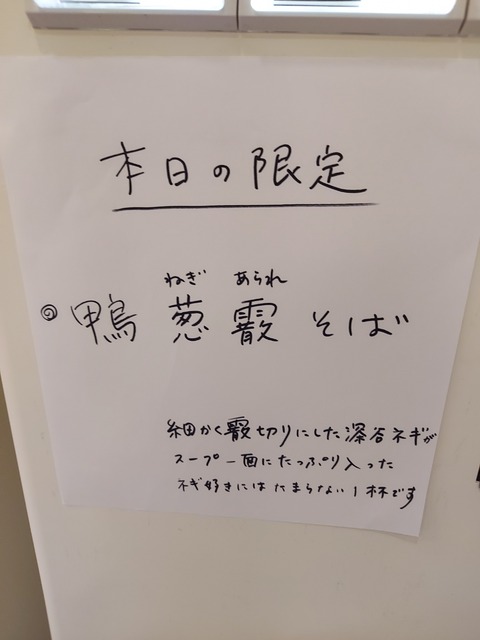 本日の限定
ねぎ あられ
鴨葱霰そば
細かく霰切りにした深谷ネギが
スープ一面にたっぷり入った
ネギ好きにはたまらない1杯です